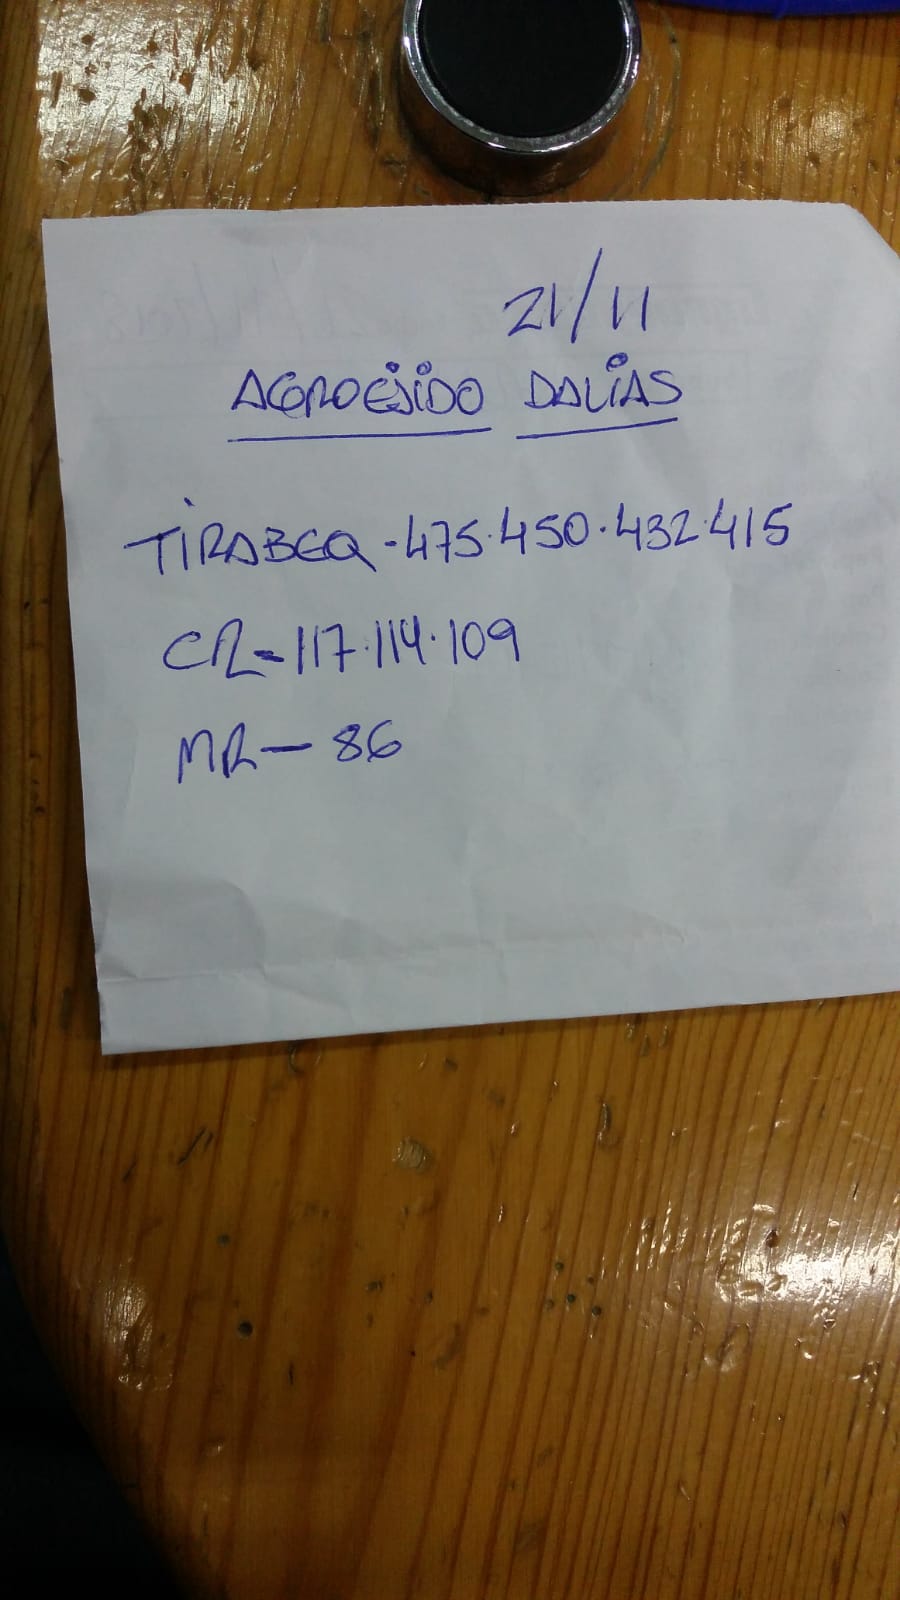 21/11
AGROEJIDO DALIAS
TIRABEQ - 475.450.432.415
CR - 117.114.109
MR - 86